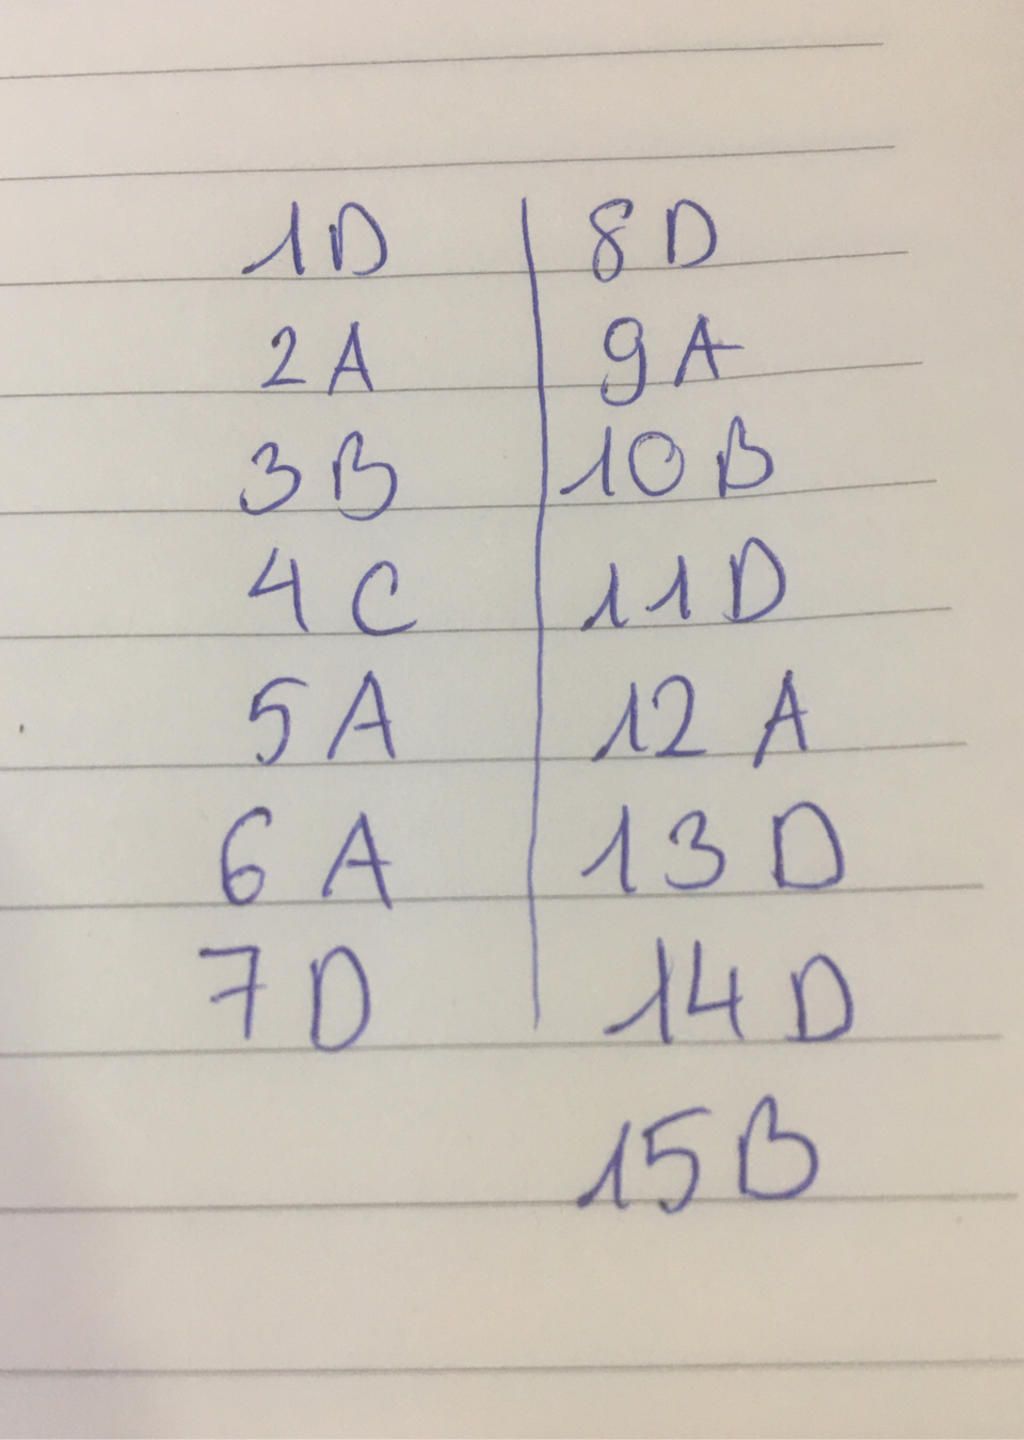 1 D
2 A
3 B
4 C
5 A
6 A
7 D
8 D
9 A
10 B
11 D
12 A
13 D
14 D
15 B